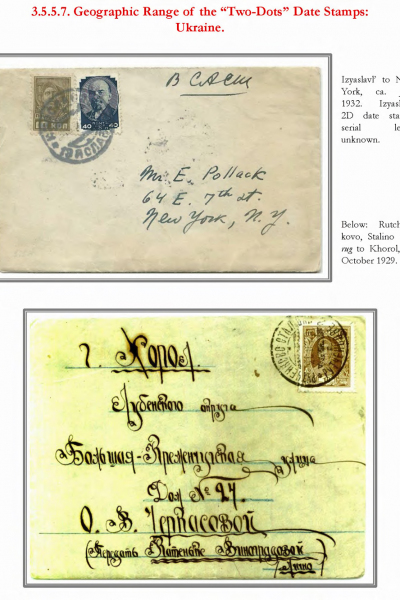 3.5.5.7. Geographic Range of the “Two-Dots” Date Stamps:
Ukraine.
Izyaslavl' to N
York, ca.
1932. Izyas
2D date sta
serial le
unknown.
В САСШ
40 40
Mr. E. Pollack
64 E. 7th st.
New York, N. Y.
Below: Rutch
kovo, Stalino
rug to Khorol,
October 1929.
г. Хорол.
Лубенского округа
Большая-Кременчугская улица
Дом № 27.
О. В. Черкасовой
(Передать Катеньке Виноградовой)